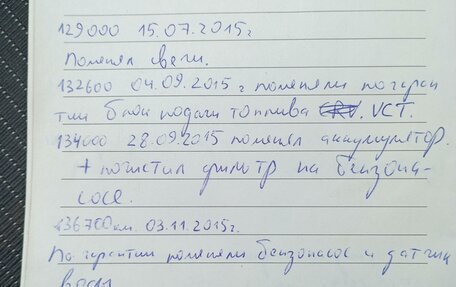 129000 15.07.2015г
Поменял свечи.
132600 04.09.2015 г поменяли по гаран
тии блок подачи топлива VCT.
134000 28.09.2015 поменял аккумулятор.
+ почистил фильтр на бензона-
сосе.
136700км. 03.11.2015г.
По гарантии поменяли бензонасос и датчик
воды